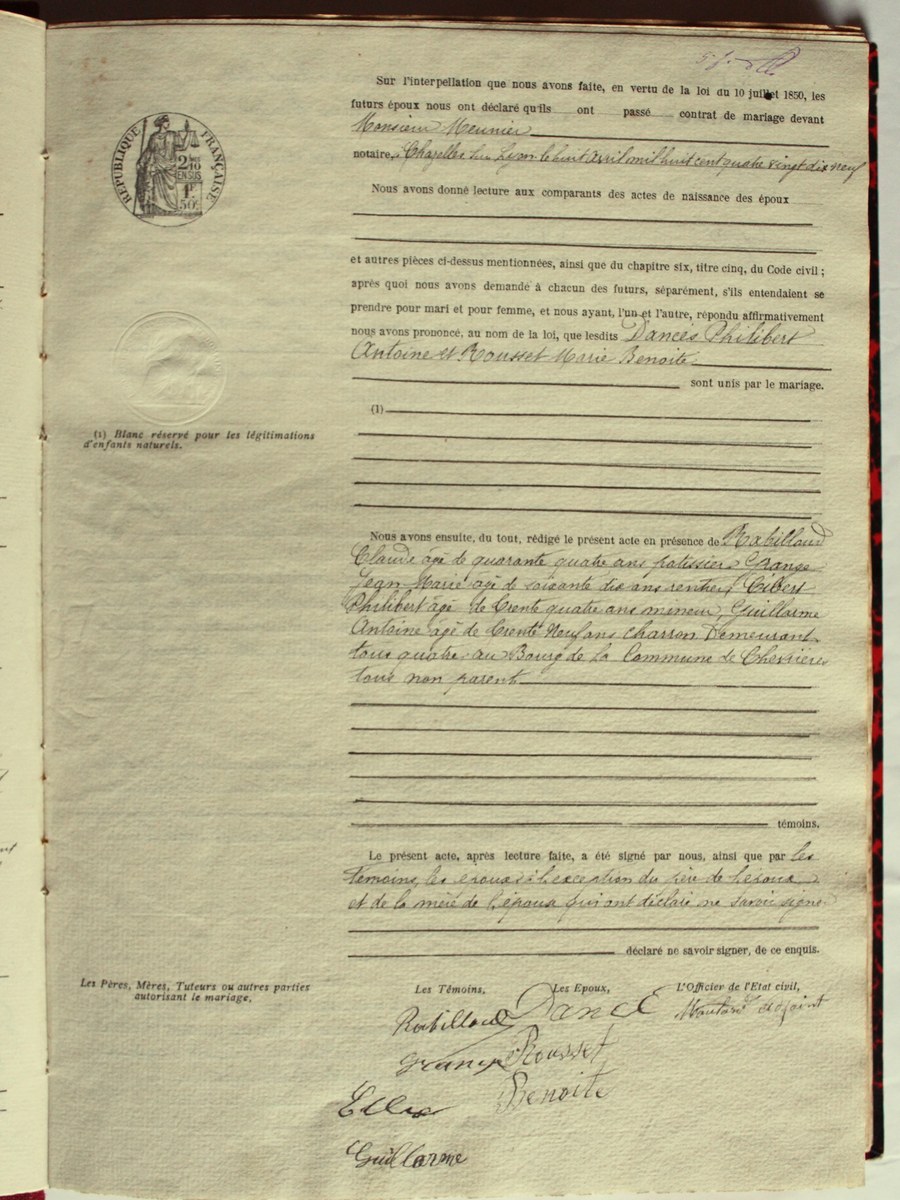 Sur l'interpellation que nous avons faite, en vertu de la loi du 10 juillet 1850, les
futurs époux nous ont déclaré qu'ils ont passé contrat de mariage devant
Monsieur Meunier
notaire, Chazelles sur Lyon le huit avril mil huit cent quatre vingt dix neuf
RÉPUBLIQUE FRANÇAISE
2/10 EN SUS
1F 50c
Nous avons donné lecture aux comparants des actes de naissance des époux
et autres pièces ci-dessus mentionnées, ainsi que du chapitre six, titre cinq, du Code civil ;
après quoi nous avons demandé à chacun des futurs, séparément, s'ils entendaient se
prendre pour mari et pour femme, et nous ayant, l'un et l'autre, répondu affirmativement
nous avons prononcé, au nom de la loi, que lesdits Dancés Philibert
Antoine et Rousset Marie Benoite
sont unis par le mariage.
(1)
(1) Blanc réservé pour les légitimations
d'enfants naturels.
Nous avons ensuite, du tout, rédigé le présent acte en présence de Rabilloud
Claude âgé de quarante quatre ans patissier, Grange
Jean Marie âgé de soixante dix ans rentier,
Philibert âgé de trente quatre ans mineur, Guillarme
Antoine âgé de trente neuf ans charron Demeurant
tous quatre au Bourg de la Commune de Chevrières
tous non parent
témoins.
Le présent acte, après lecture faite, a été signé par nous, ainsi que par les
témoins, les epoux à l'exception du père de l'epoux
et de la mère de l'epouse qui ont déclaré ne savoir signer
déclaré ne savoir signer, de ce enquis.
Les Pères, Mères, Tuteurs ou autres parties
autorisant le mariage,
Les Témoins, Les Epoux, L'Officier de l'Etat civil,
Rabilloud Dancé adjoint
Grange Rousset
Benoite
Guillarme